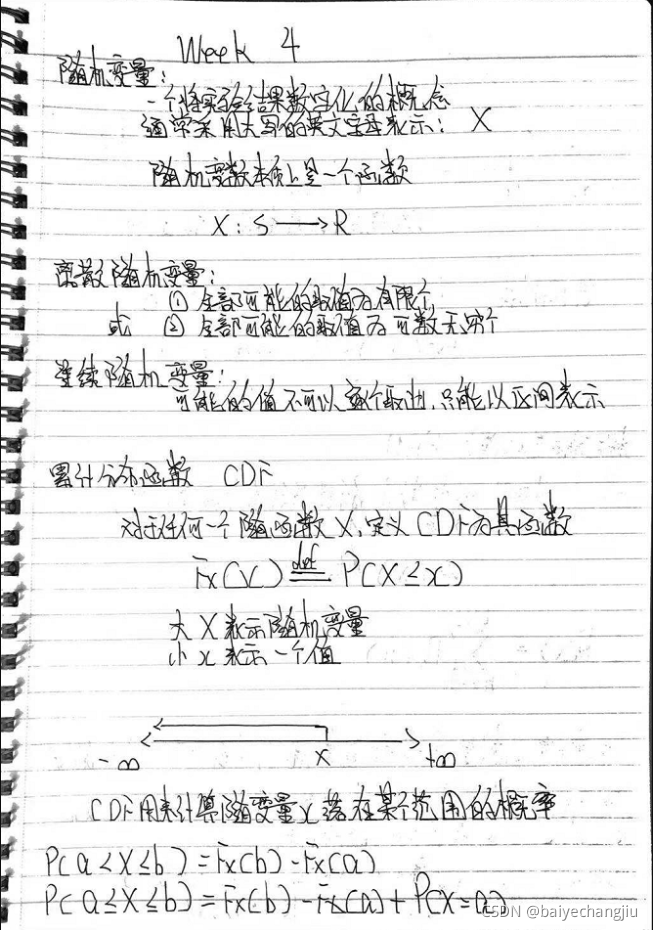 Week 4
随机变量：
一个将实验结果数字化的概念
通常采用大写的英文字母表示： X
随机变数本质上是一个函数
X : S → R
离散随机变量：
① 全部可能的取值为有限个
或 ② 全部可能的取值为可数无穷个
连续随机变量：
可能的值不可以逐个取出，只能以区间表示
累计分布函数 CDF
对于任何一个随函数 X，定义 CDF 为其函数
Fx(x) def= P(X≤x)
大 X 表示随机变量
小 x 表示一个值
-∞ x +∞
CDF用来计算随变量x落在某个范围的概率
P(a<X≤b) = Fx(b) - Fx(a)
P(a≤X≤b) = Fx(b) - Fx(a) + P(X=a)
CSDN @baiyechangjiu